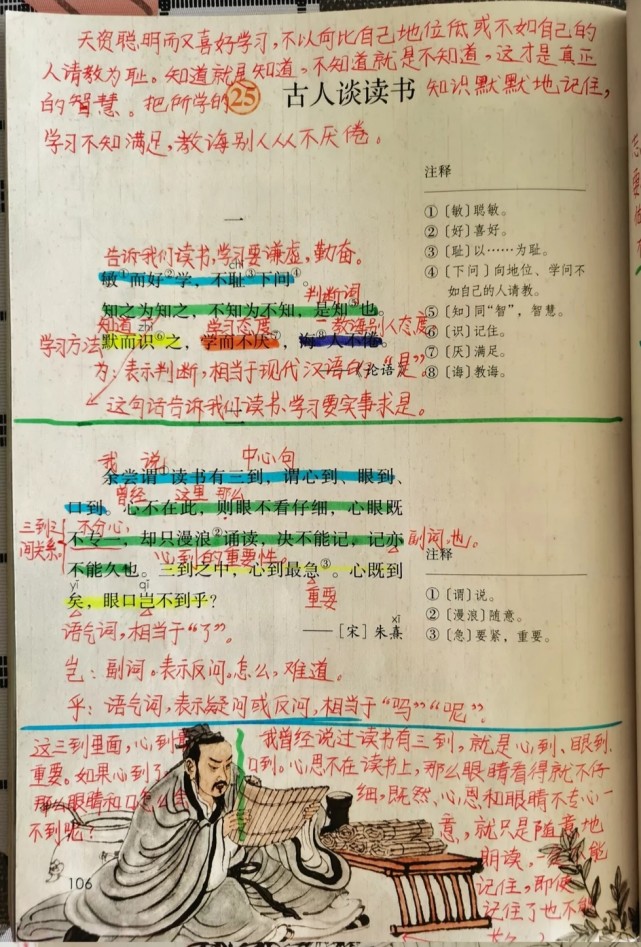 天资聪明而又喜好学习,不以向比自己地位低或不如自己的
人请教为耻。知道就是知道,不知道就是不知道,这才是真正
的智慧。把所学的
25 古人谈读书
知识默默地记住,
学习不知满足,教诲别人从不厌倦。
一
告诉我们读书,学习要谦虚,勤奋。
chǐ
敏①而好②学,不耻③下问④。
判断词
知之为知之,不知为不知,是知⑤也。
知道 zhì 学习态度 教诲别人态度
学习方法
默而识⑥之,学而不厌⑦,诲⑧人不倦。
为:表示判断,相当于现代汉语的“是”。
《论语》
这句话告诉我们读书、学习要实事求是。
注释
①〔敏〕聪敏。
②〔好〕喜好。
③〔耻〕以……为耻。
④〔下问〕向地位、学问不
如自己的人请教。
⑤〔知〕同“智”,智慧。
⑥〔识〕记住。
⑦〔厌〕满足。
⑧〔诲〕教诲。
二
我 说 中心句
余尝谓①读书有三到,谓心到、眼到、
曾经 这里 那么
口到。心不在此,则眼不看仔细,心眼既
三到之
间关系
不分心
不专一,却只漫浪②诵读,决不能记,记亦
副词。也。
心到的重要性。
不能久也。三到之中,心到最急③。心既到
yǐ qǐ 重要
矣,眼口岂不到乎?
语气词,相当于“了”。
——[宋]朱熹
xī
注释
①〔谓〕说。
②〔漫浪〕随意。
③〔急〕要紧,重要。
岂:副词。表示反问。怎么,难道。
乎:语气词,表示疑问或反问,相当于“吗”“呢”。
这三到里面,心到最
重要。如果心到了
那么眼睛和口怎么会
不到呢?
我曾经说过读书有三到,就是心到、眼到、
口到。心思不在读书上,那么眼睛看得就不仔
细,既然心思和眼睛不专心一
意,就只是随意地
朗读,一定不能
记住,即使
记住了也不能
106